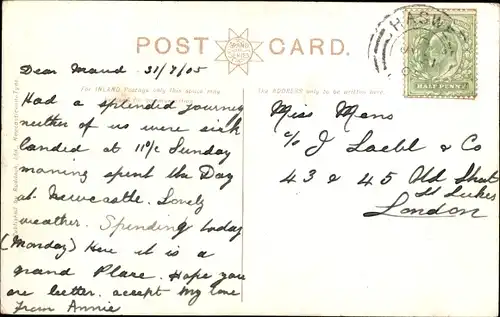 POST CARD.
HASWELL
HALF PENNY
For INLAND Postage only this space may
The ADDRESS only to be written here.
Dear Maud 31/7/05
Had a splendid journey
neither of us were sick
landed at 11 o/c Sunday
morning spent the Day
at Newcastle. Lovely
weather. Spending today
(Monday) Here it is a
grand Place. Hope you
are better. accept my love
From Annie
Miss Mens
c/o J Loebl & Co
43 & 45 Old Street
St Lukes
London